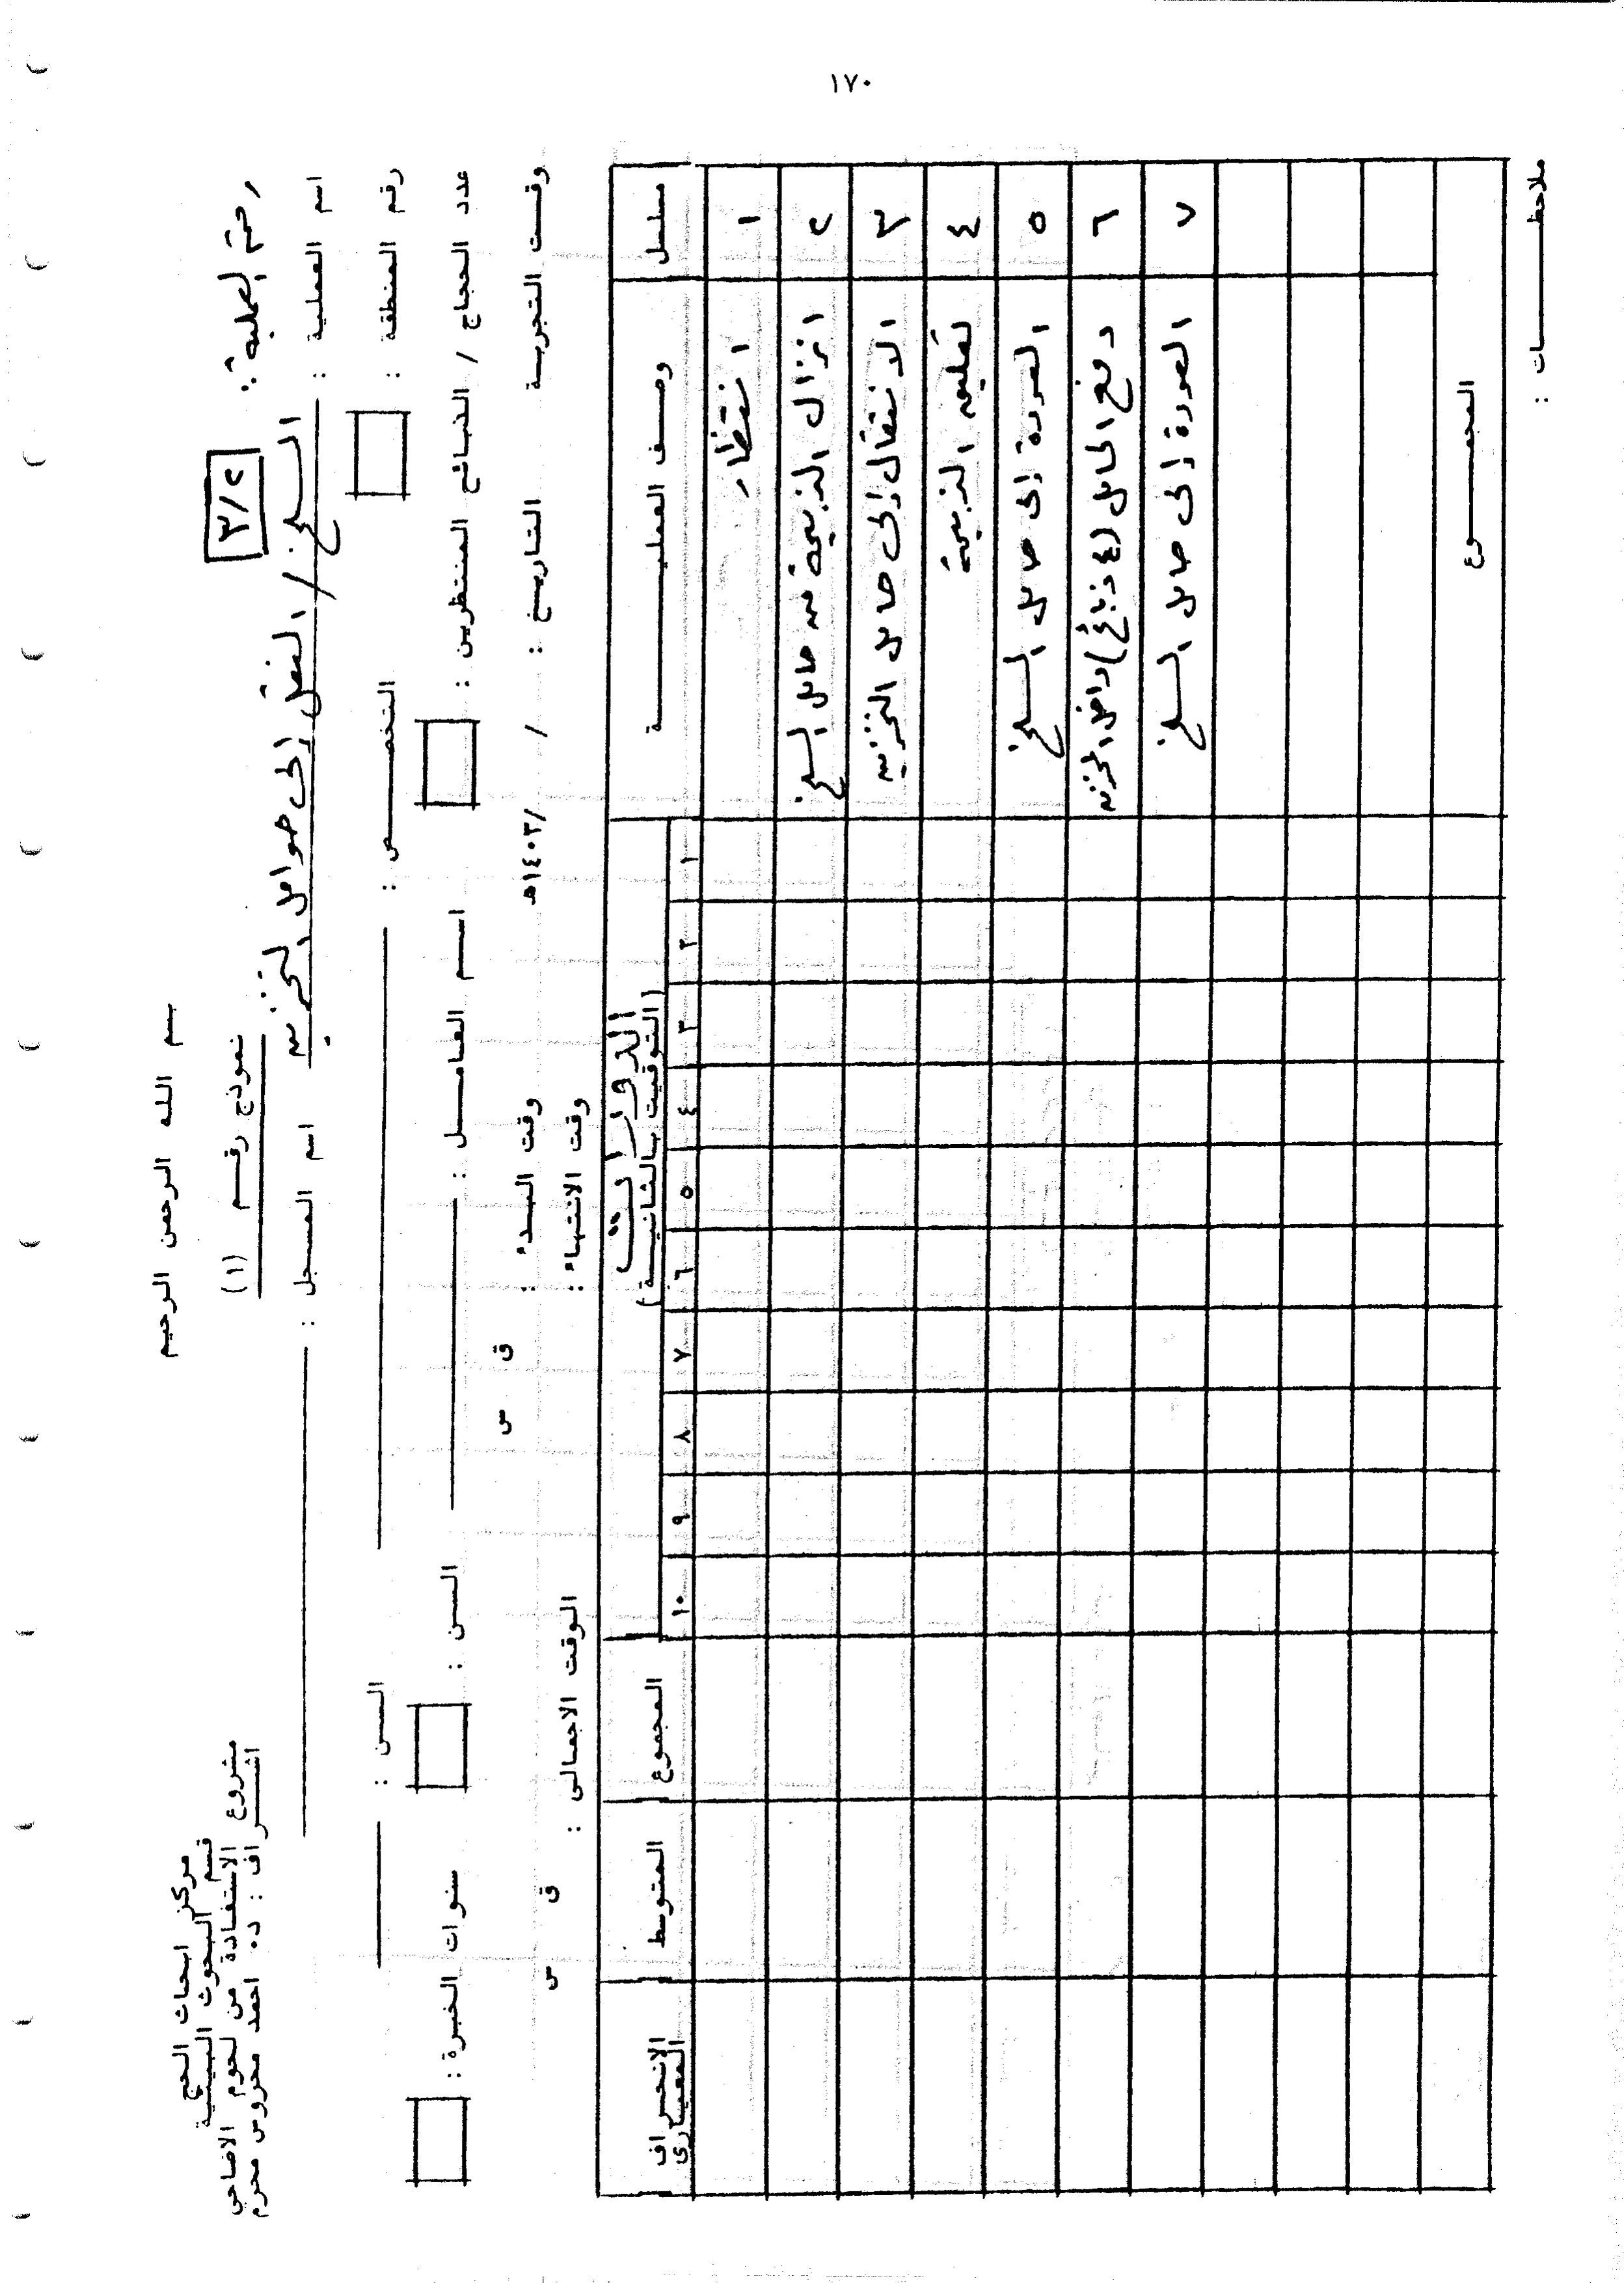 ١٧٠
بسم الله الرحمن الرحيم
مركز ابحاث الحج
قسم البحوث البيئية
مشروع الاستفادة من لحوم الاضاحي
اشراف : د. احمد محروس محرم
نموذج رقم (١)
رقم العملية : ٣/٢
اسم العملية : السلخ / النقل إلى حوامل التخزين
اسم المسجل :
رقم المنطقة :
التخصص :
السن :
عدد الحجاج / الذبائح المنتظرين :
اسم العامل :
السن :
سنوات الخبرة :
وقت التجربة
التاريخ : / /١٤٠٣هـ
وقت البدء :
ق س
وقت الانتهاء :
الوقت الاجمالى :
ق س
مسلسل
وصف العملية
الدورات
(التوقيت بالثانية)
١ ٢ ٣ ٤ ٥ ٦ ٧ ٨ ٩ ١٠
المجموع
المتوسط
الانحراف المعيارى
١ انتظار
٢ انزال الذبيحة من حامل السلخ
٣ الانتقال إلى حامل التخزين
٤ تعليق الذبيحة
٥ العودة إلى حامل السلخ
٦ دفع الحامل (٤ ذبائح) داخل المخزن
٧ العودة إلى حامل السلخ
المجموع
ملاحظات :